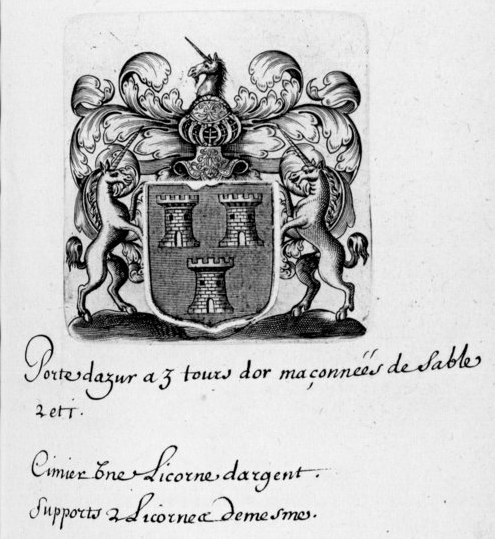 Porte dazur a 3 tours dor maçonneés de Sable
2 et 1.
Cimier Vne Licorne dargent.
Supports 2 Licornes demesme.